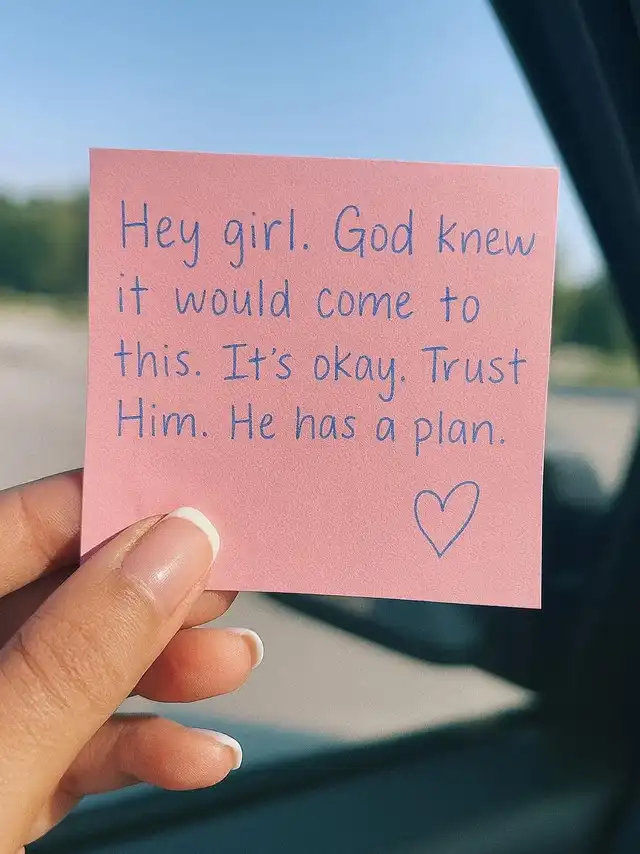 Hey girl. God knew
it would come to
this. It's okay. Trust
Him. He has a plan.